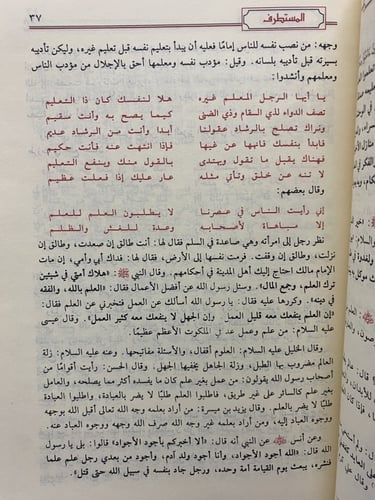 ٣٧
المستطرف
وجهه: من نصب نفسه للناس إمامًا فعليه أن يبدأ بتعليم نفسه قبل تعليم غيره، وليكن تأديبه
بسيرته قبل تأديبه بلسانه. وقيل: مؤدب نفسه ومعلمها أحق بالإجلال من مؤدب الناس
ومعلمهم وأنشدوا:
يا أيها الرجل المعلم غيره هلا لنفسك كان ذا التعليم
تصف الدواء لذي السقام وذي الضنى كيما يصح به وأنت سقيم
وتراك تصلح بالرشاد عقولنا أبدا وأنت من الرشاد عديم
فابدأ بنفسك فانهها عن غيها فإذا انتهت عنه فأنت حكيم
فهناك يقبل ما تقول ويهتدى بالقول منك وينفع التعليم
لا تنه عن خلق وتأتي مثله عار عليك إذا فعلت عظيم
وقال بعضهم:
إني رأيت الناس في عصرنا لا يطلبون العلم للعلم
إلا مباهاة لأصحابه وعدة للغش والظلم
نظر رجل إلى امرأته وهي صاعدة في السلم فقال لها: أنت طالق إن صعدت، وطالق إن
نزلت، وطالق إن وقفت. فرمت نفسها إلى الأرض، فقال لها: فداك أبي وأمي، إن مات
الإمام مالك احتاج إليك أهل المدينة في أحكامهم. وقال النبي ﷺ: «هلاك أمتي في شيئين
ترك العلم، وجمع المال». وسئل رسول الله عن أفضل الأعمال فقال: «العلم بالله، والفقه
في دينه». وكررها عليه فقال: يا رسول الله أسألك عن العمل فتخبرني عن العلم فقال:
«إن العلم ينفعك معه قليل العمل. وإن الجهل لا ينفعك معه كثير العمل». وقال عيسى
عليه السلام: من علم وعمل عد في الملكوت الأعظم عظيمًا.
وقال الخليل عليه السلام: العلوم أقفال، والأسئلة مفاتيحها. وعنه عليه السلام: زلة
العالم مضروب بها الطبل، وزلة الجاهل يخفيها الجهل. وقال الحسن: رأيت أقوامًا من
أصحاب رسول الله يقولون: من عمل بغير علم كان ما يفسده أكثر مما يصلحه، والعامل
بغير علم كالسائر على غير طريق، فاطلبوا العلم طلبًا لا يضر بالعبادة، واطلبوا العبادة
طلبًا لا يضر بالعلم. وقال يزيد بن ميسرة: من أراد بعلمه وجه الله تعالى أقبل الله بوجهه
ووجوه العباد إليه، ومن أراد بعلمه غير وجه الله صرف الله وجهه ووجوه العباد عنه.
وعن أنس ﷺ عن النبي أنه قال: «ألا أخبركم بأجود الأجواد» قالوا: بلى يا رسول
الله قال: «الله أجود الأجواد، وأنا أجود ولد آدم، وأجود من بعدي رجل علم علما
فنشره، يبعث يوم القيامة أمة وحده، ورجل جاد بنفسه في سبيل الله حتى قتل».